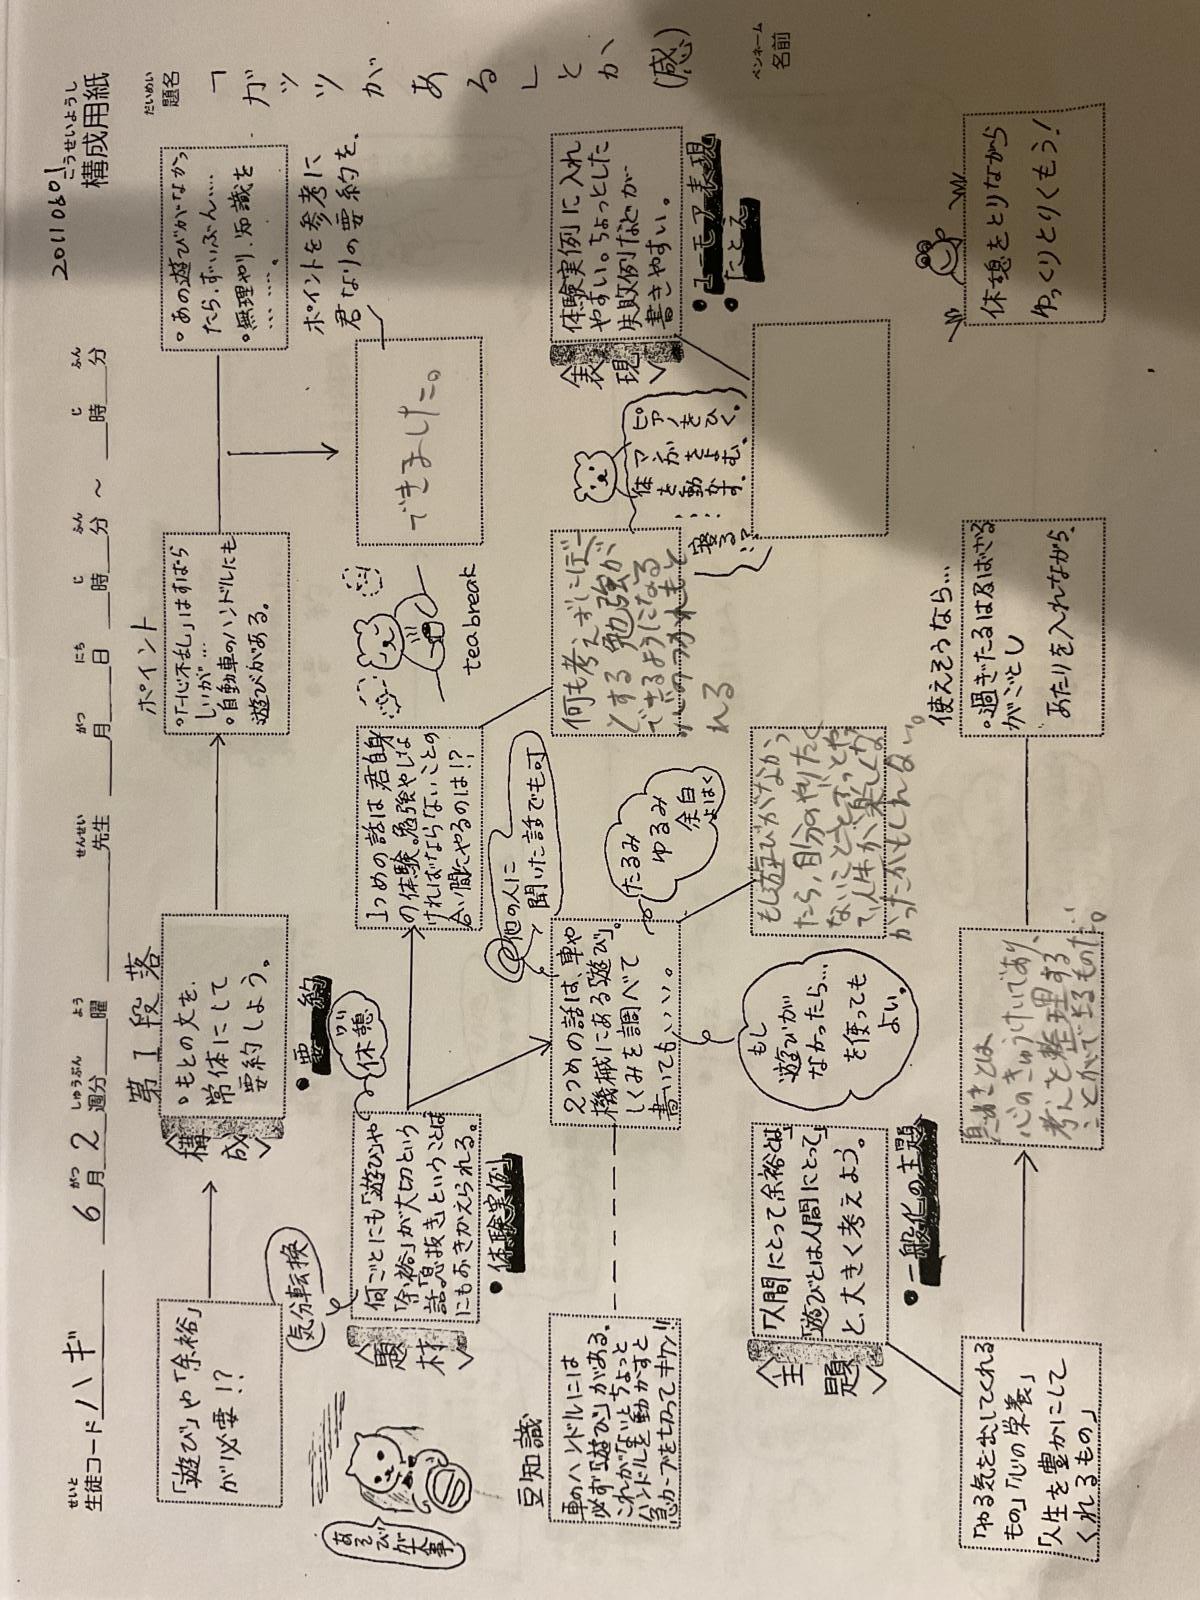 20110601
こうせいようし
構成用紙
せいと
生徒コード ハギ
がつ しゅうぶん よう
6月2週分 曜
せんせい
先生
がつ にち じ ふん じ ふん
月 日 時 分 〜 時 分
だいめい
題名
「ガッツがある」とか、(感)
ペンネーム
名前
「遊び」や「余裕」
が必要!?
第1段落
〈構成〉
。もとの文を、
常体にして
要約しよう。
・要約
ポイント
。「一心不乱」はすばら
しいが…
。自動車のハンドルにも
遊びがある。
。あの遊びがなかっ
たら、ずいぶん……
。無理やり、知識を
………。
ポイントを参考に
君なりの要約を、
できました。
あそび
が
大事
気分転換
〈題材〉
何ごとにも「遊び」や
「余裕」が大切という
話。「息抜き」ということば
にもおきかえられる。
・体験実例
休憩
1つめの話は君自身
の体験。勉強やしな
ければならないことの
合い間にやるのは!?
他の人に
聞いた話でも可
tea break
豆知識
車のハンドルには
必ず「遊び」がある。
これがないとちょっと
ハンドルを動かすと
急カーブを切ってキケン!!
2つめの話は、車や
機械にある「遊び」。
しくみを調べて
書いても、、、、。
たるみ
ゆるみ
余白
よはく
何も考えずにぼー
とする 勉強が、
できるようになる
心のつかれもと
れる
ピアノをひく。
マンガをよむ、
体を動かす、
…
寝る!?
〈表現〉
体験実例に入れ
やすい。ちょっとした
失敗例などが
書きやすい。
・ユーモア表現
・たとえ
〈主題〉
「人間にとって余裕とは」
「遊びとは人間にとって」
と、大きく考えよう。
・一般化の主題
もし
遊びが
なかったら…
を使っても
よい。
もし遊びがなかっ
たら、自分のやりたく
ないことをずっとや
って人生が楽しくな
かったかもしれない。
「やる気を出してくれる
もの」「心の栄養」
「人生を豊かにして
くれるもの」
息ぬきとは
心のきゅうけいであり、
考えを整理する
ことができるものだ。
使えそうなら…
。過ぎたるは及ばざる
がごとし
あたりを入れながら、
休憩をとりながら
ゆっくりとりくもう!